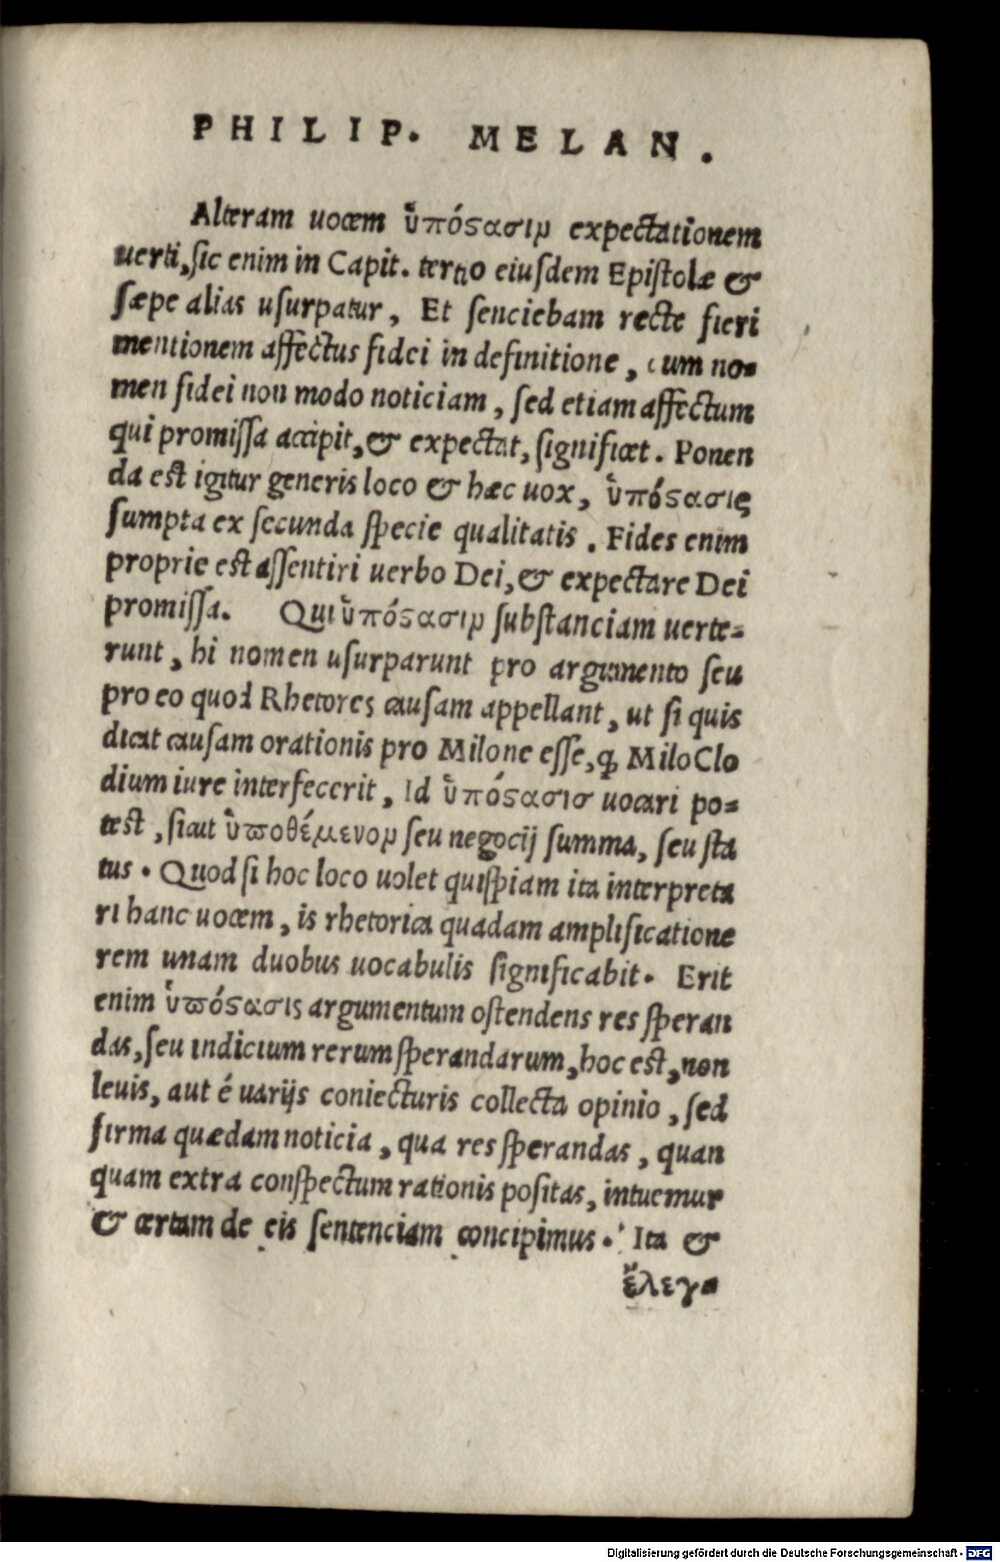 PHILIP. MELAN.
Alteram uocem ὑπόςασιν expectationem
uerti, sic enim in Capit. tertio eiusdem Epistolæ &
sæpe alias usurpatur, Et senciebam recte fieri
mentionem affectus fidei in definitione, cum no=
men fidei non modo noticiam, sed etiam affectum
qui promissa accipit, & expectat, significet. Ponen
da est igitur generis loco & hæc uox, ὑπόςασις
sumpta ex secunda specie qualitatis. Fides enim
proprie est assentiri uerbo Dei, & expectare Dei
promissa. Qui ὑπόςασιν substanciam uerte=
runt, hi nomen usurparunt pro argumento seu
pro eo quod Rhetores causam appellant, ut si quis
dicat causam orationis pro Milone esse, ꝙ Milo Clo
dium iure interfecerit, Id ὑπόςασισ uocari po=
test, sicut ὑποθέμενον seu negocij summa, seu sta
tus. Quod si hoc loco uolet quispiam ita interpreta
ri hanc uocem, is rhetorica quadam amplificatione
rem unam duobus uocabulis significabit. Erit
enim ὑπόςασις argumentum ostendens res speran
das, seu indicium rerum sperandarum, hoc est, non
leuis, aut é uarijs coniecturis collecta opinio, sed
firma quædam noticia, qua res sperandas, quan
quam extra conspectum rationis positas, intuemur
& certam de eis sentenciam concipimus. Ita &
ἔλεγ=
Digitalisierung gefördert durch die Deutsche Forschungsgemeinschaft - DFG